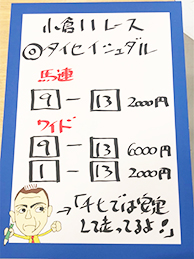 小倉11レース
◎タイセイシュダル
馬連
9 - 13 2000円
ワイド
9 - 13 6000円
1 - 13 2000円
→「チビでは安定
して走ってるよ!」